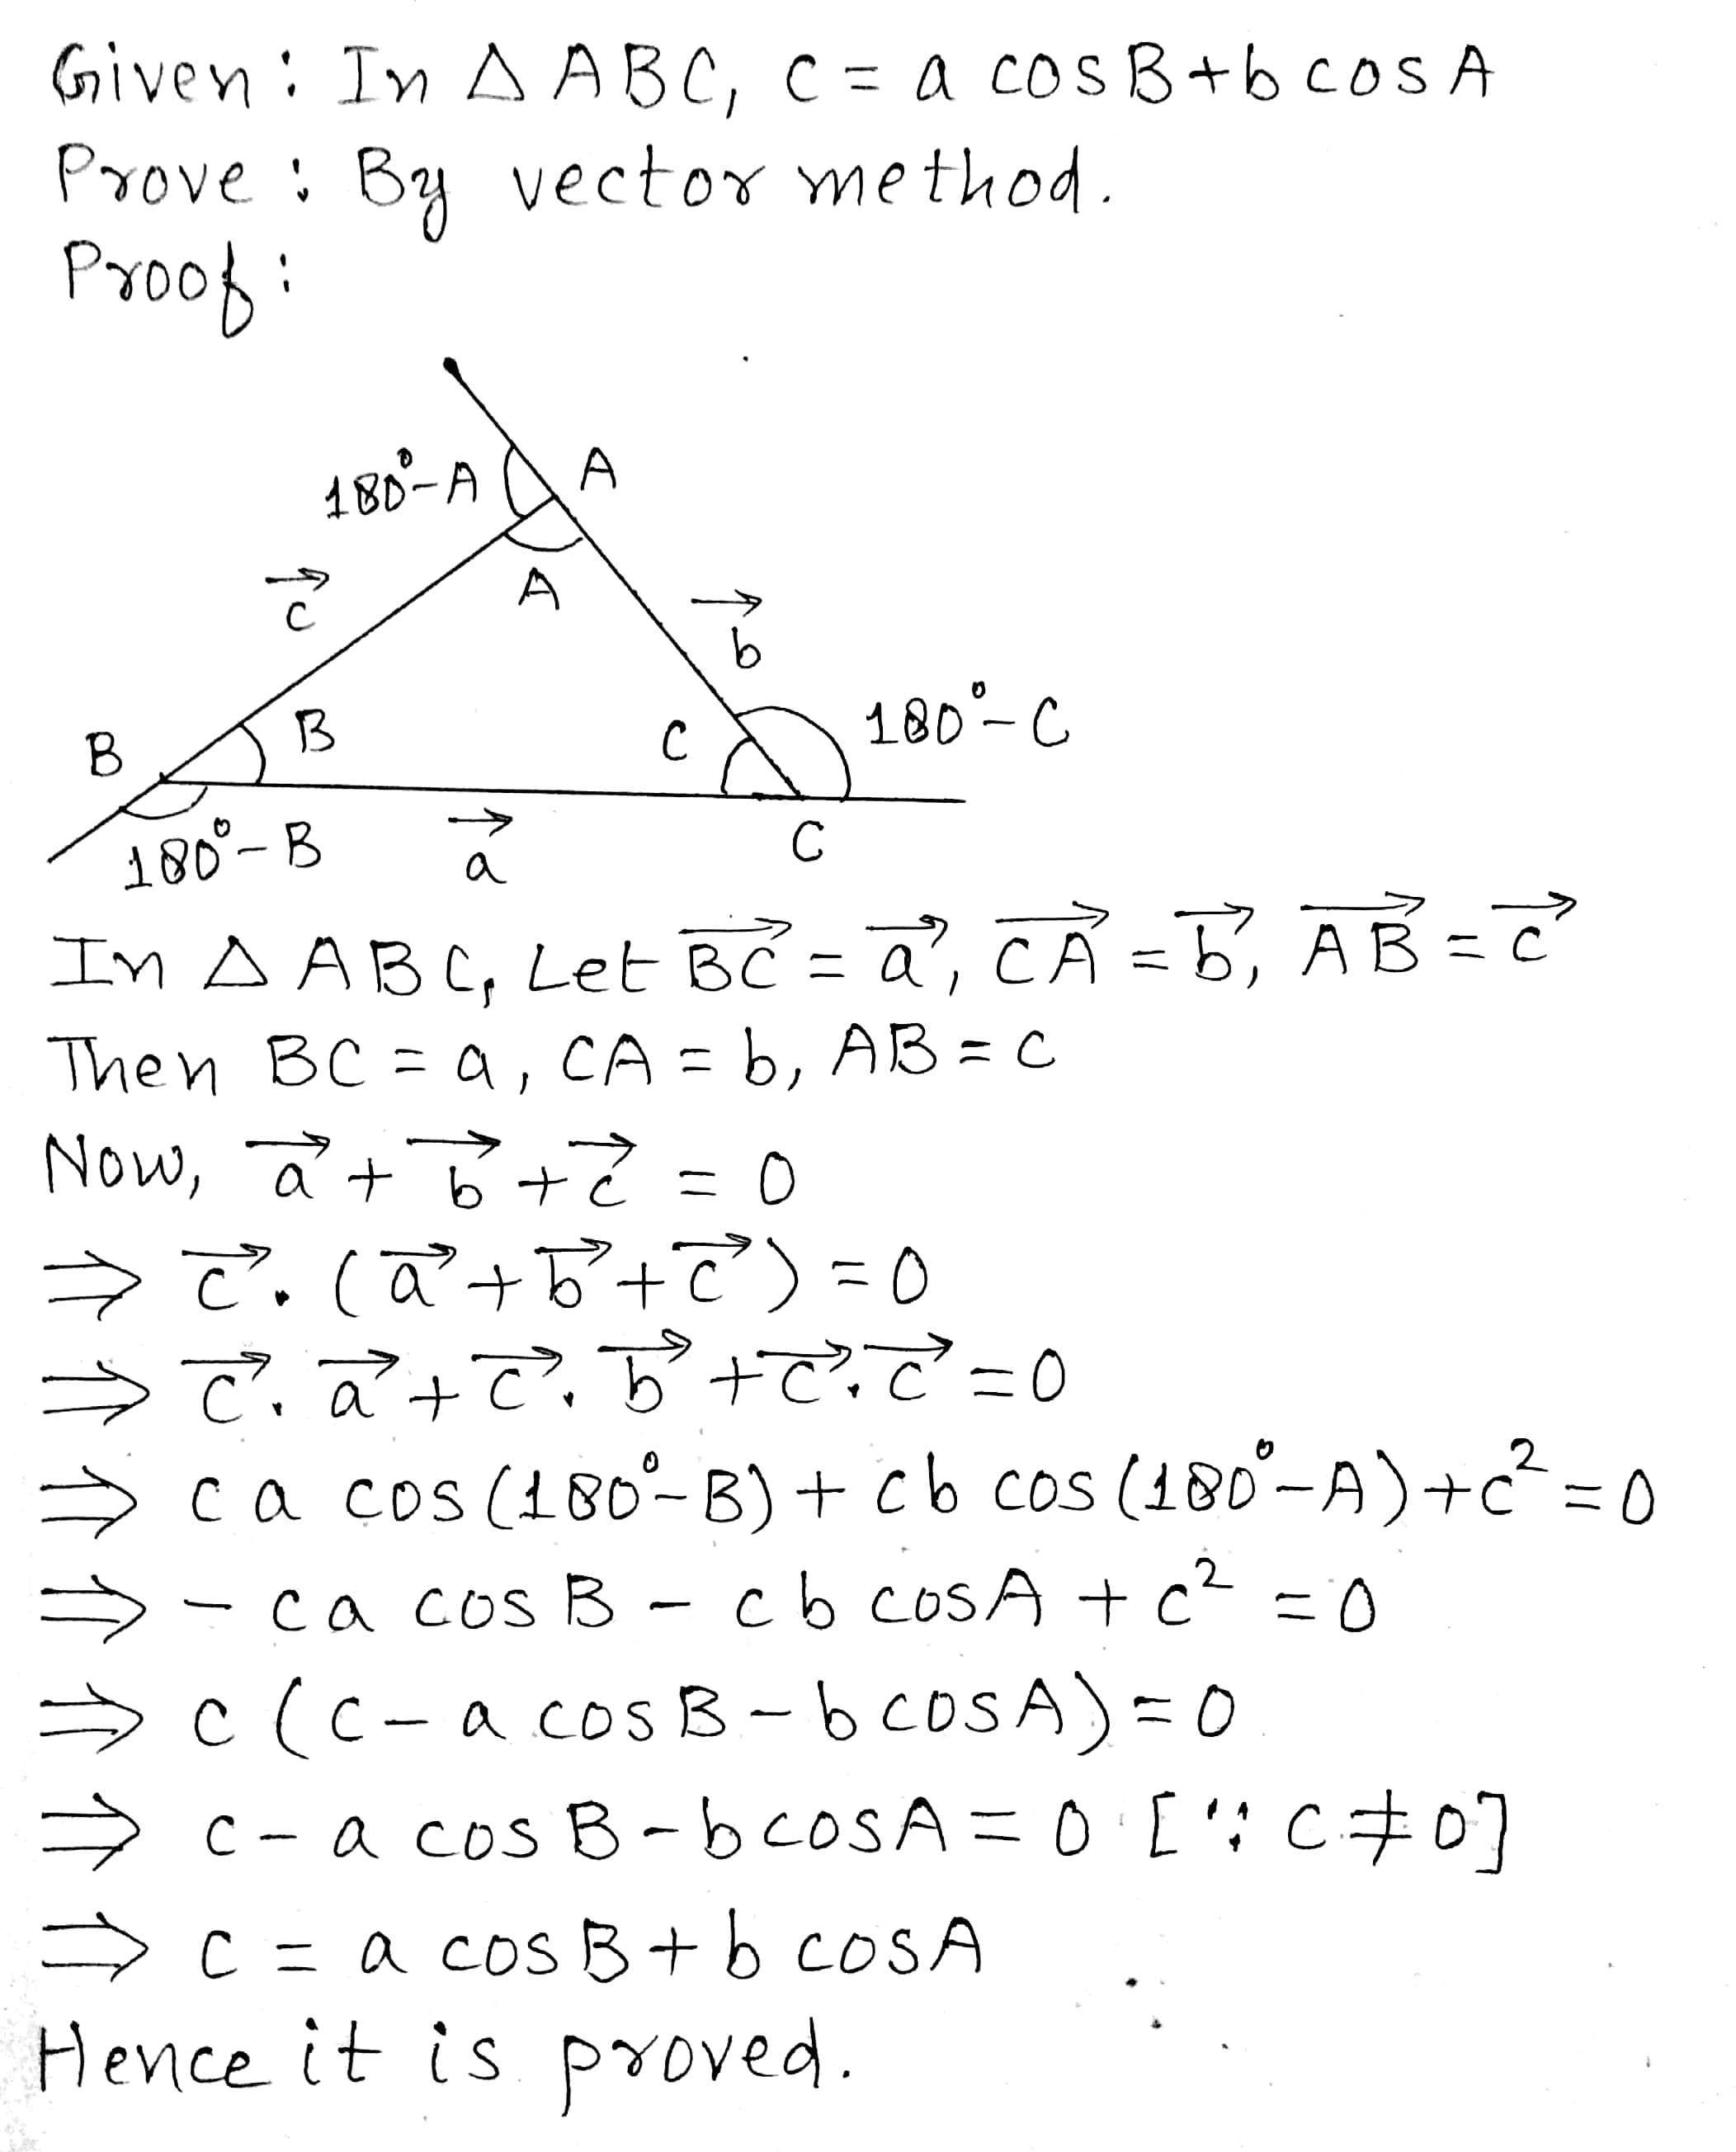 Given: In △ ABC, c = a cosB + b cosA
Prove: By vector method.
Proof:
180°-A A
A
→c
→b
B B C 180°-C
180°-B →a C
In △ ABC, Let →BC = →a, →CA = →b, →AB = →c
Then BC = a, CA = b, AB = c
Now, →a + →b + →c = 0
⇒ →c . (→a + →b + →c) = 0
⇒ →c . →a + →c . →b + →c . →c = 0
⇒ c a cos(180°-B) + cb cos(180°-A) + c² = 0
⇒ - ca cosB - cb cosA + c² = 0
⇒ c (c - a cosB - b cosA) = 0
⇒ c - a cosB - b cosA = 0 [∵ c ≠ 0]
⇒ c = a cosB + b cosA
Hence it is proved.